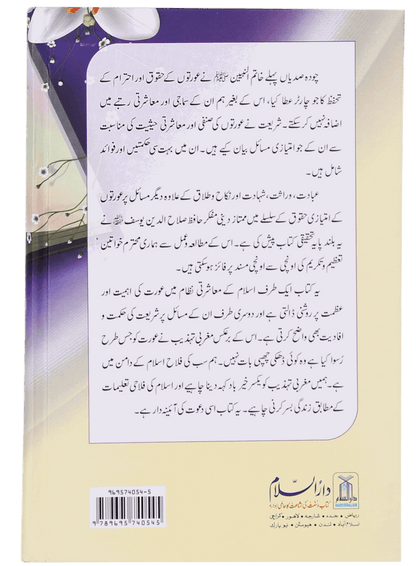 چودہ صدیاں پہلے خاتم النبیین ﷺ نے عورتوں کے حقوق اور احترام کے
تحفظ کا جو چارٹر عطا کیا، اس کے بغیر ہم ان کے سماجی اور معاشرتی رتبے میں
اضافہ نہیں کر سکتے۔ شریعت نے عورتوں کی صنفی اور معاشرتی حیثیت کی مناسبت
سے ان کے جو امتیازی مسائل بیان کیے ہیں۔ ان میں بہت سی حکمتیں اور فوائد
شامل ہیں۔
عبادت، وراثت، شہادت اور نکاح و طلاق کے علاوہ دیگر مسائل پر عورتوں
کے امتیازی حقوق کے سلسلے میں ممتاز دینی مفکر حافظ صلاح الدین یوسف ﷾ نے
یہ بلند پایہ تحقیقی کتاب پیش کی ہے۔ اس کے مطالعہ و عمل سے ہماری محترم خواتین
تعظیم و تکریم کی اونچی سے اونچی مسند پر فائز ہو سکتی ہیں۔
یہ کتاب ایک طرف اسلام کے معاشرتی نظام میں عورت کی اہمیت اور
عظمت پر روشنی ڈالتی ہے اور دوسری طرف ان کے مسائل پر شریعت کی حکمت و
افادیت بھی واضح کرتی ہے۔ اس کے برعکس مغربی تہذیب نے عورت کو جس طرح
رُسوا کیا ہے وہ کوئی ڈھکی چھپی بات نہیں۔ ہم سب کی فلاح اسلام کے دامن میں
ہے۔ ہمیں مغربی تہذیب کو یکسر خیر باد کہہ دینا چاہیے اور اسلام کی فلاحی تعلیمات
کے مطابق زندگی بسر کرنی چاہیے۔ یہ کتاب اسی دعوت کی آئینہ دار ہے۔
969574054-5
9 789695 740545
دارُالسلام
کتاب و سنت کی اشاعت کا عالمی ادارہ
ریاض • جدہ • شارجہ • لاہور • کراچی
اسلام آباد • لندن • ہیوسٹن • نیو یارک